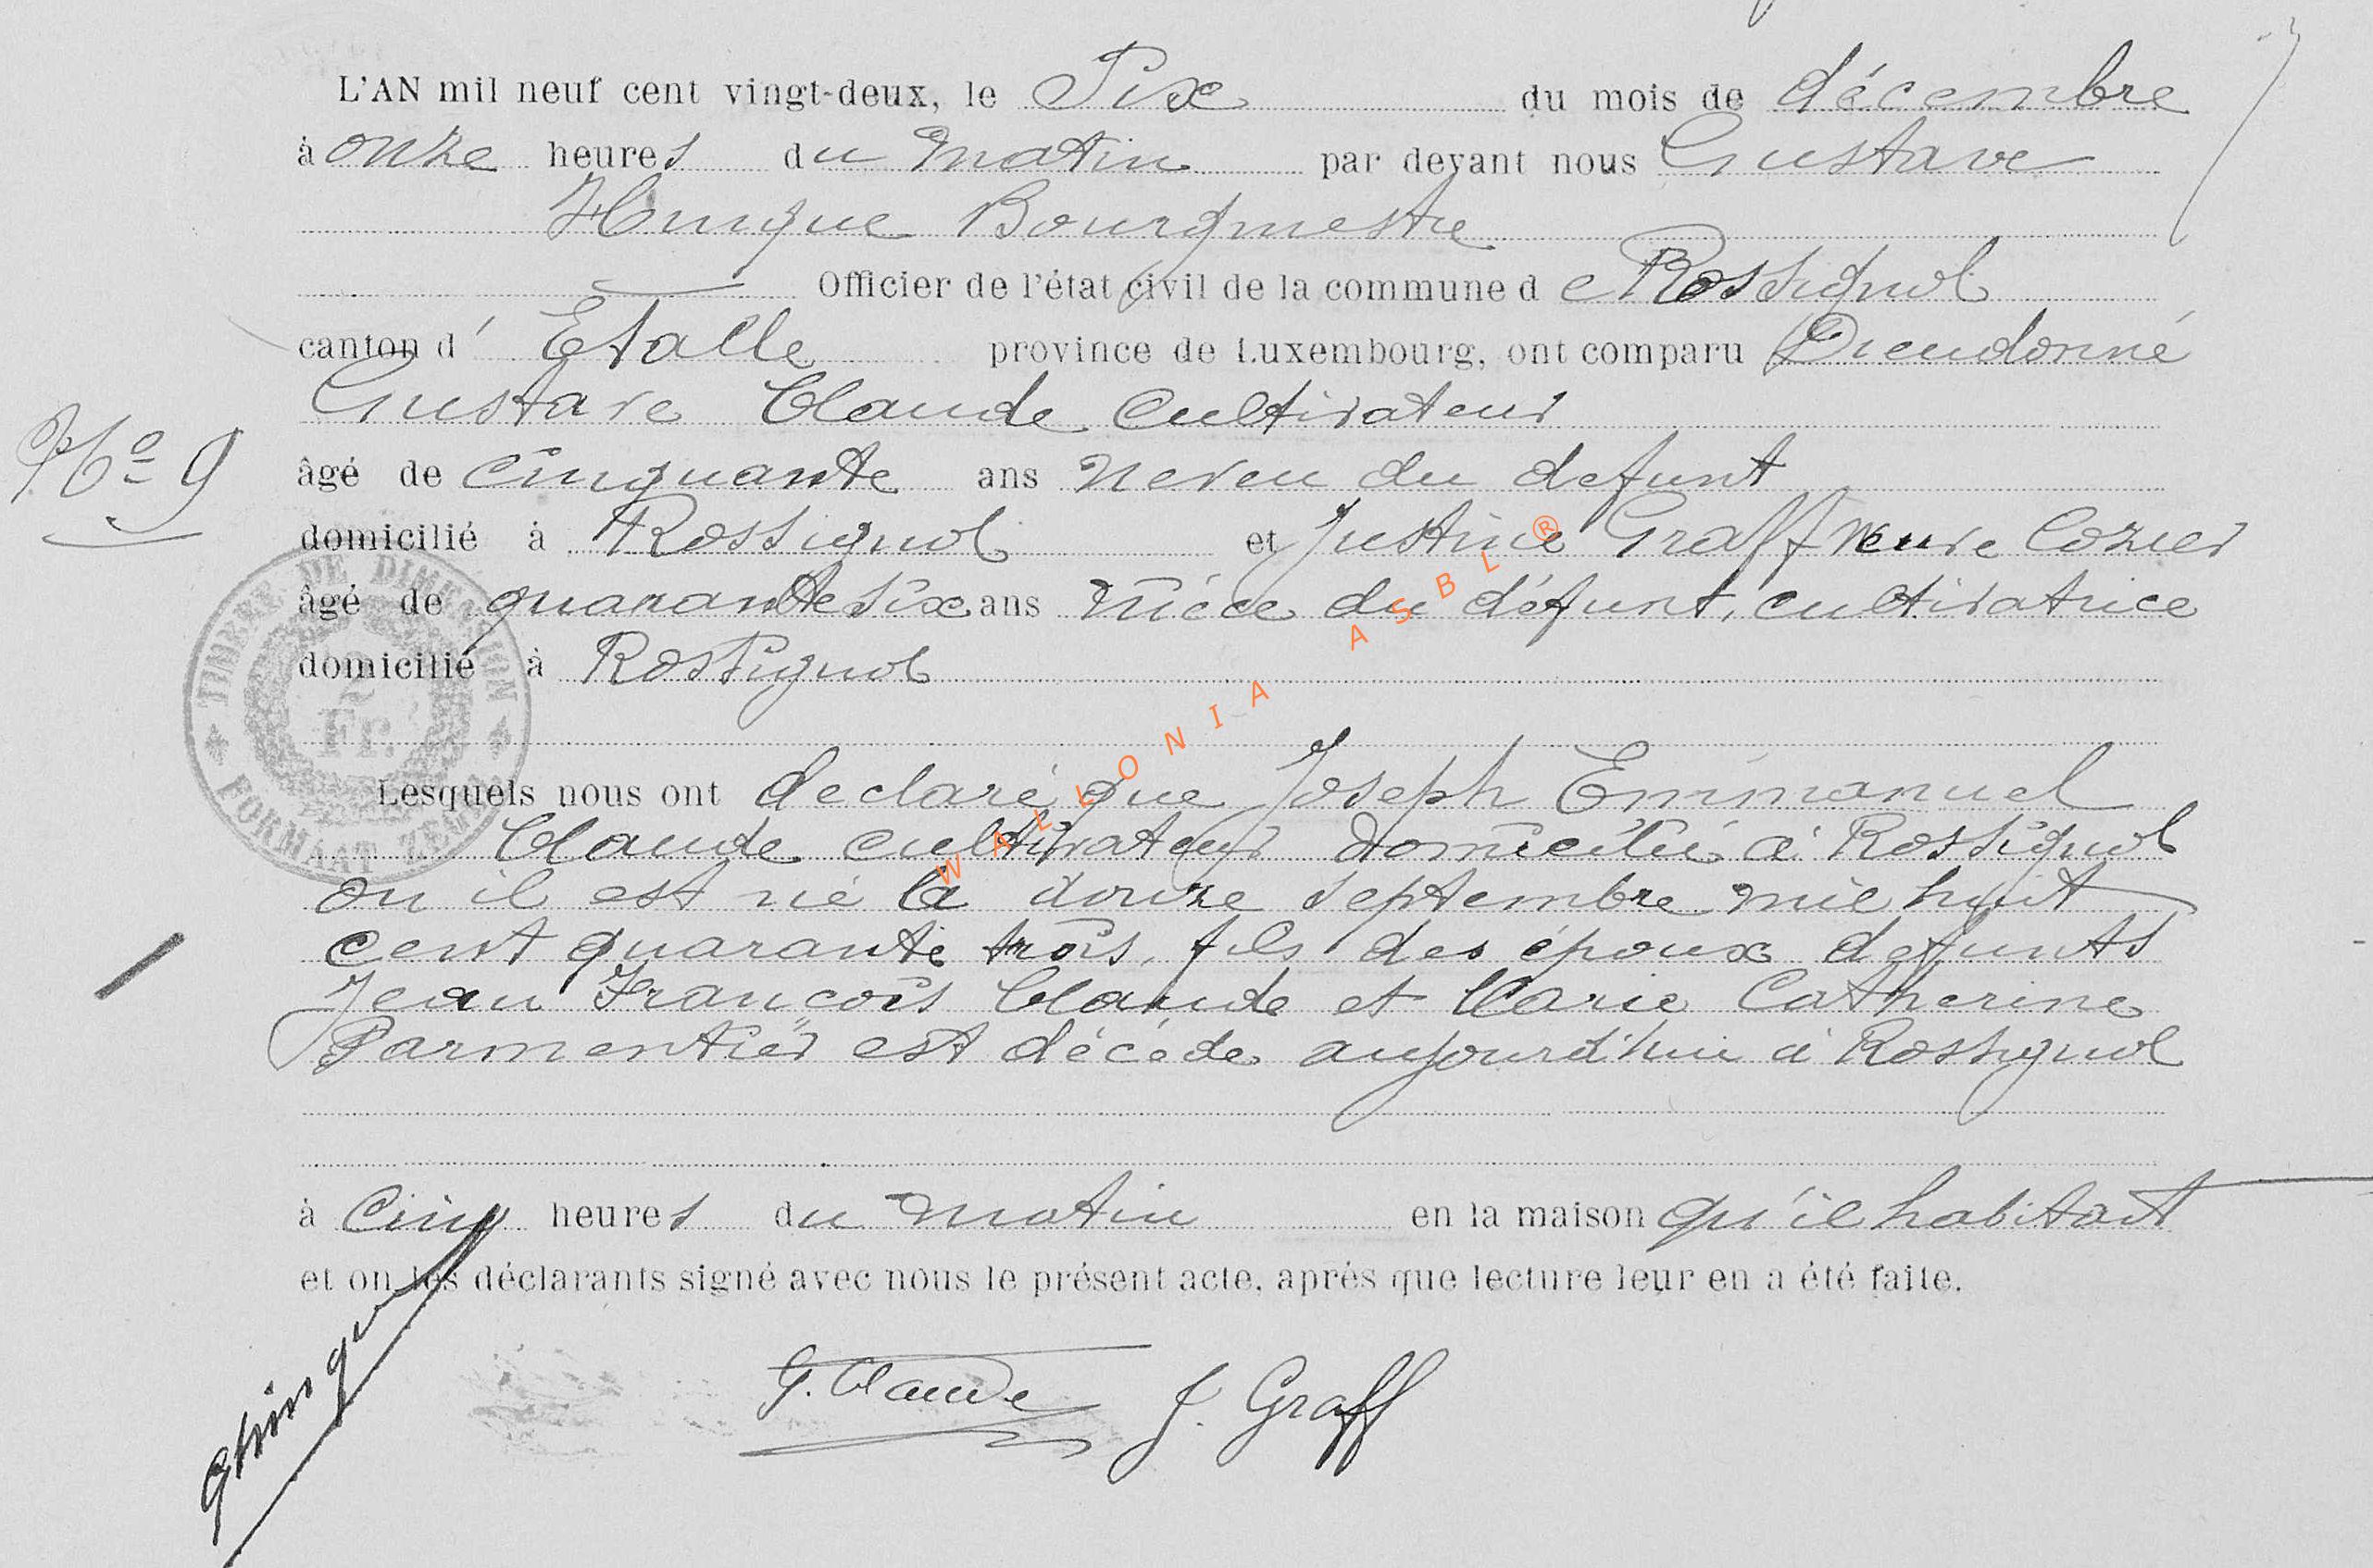 L'AN mil neuf cent vingt-deux, le Six du mois de décembre
à onze heures du matin par devant nous Gustave
Hinque Bourgmestre
Officier de l'état civil de la commune de Rossignol
canton d'Etalle province de Luxembourg, ont comparu Dieudonné
Gustave Claude Cultivateur
N° 9
âgé de cinquante ans neveu du defunt
domicilié à Rossignol et Justine Graff veuve Cozier
âgé de quarante six ans nièce du défunt, cultivatrice
domicilié à Rossignol
TIMBRE DE DIMENSION
2 Fr.
FORMAAT ZEGEL
Lesquels nous ont declaré que Joseph Emmanuel
Claude cultivateur domicilié à Rossignol
ou il est né le douze septembre mil huit
cent quarante trois, fils des époux defunts
Jean François Claude et Marie Catherine
Parmentier est décédé aujourd'hui à Rossignol
à cinq heures du matin en la maison qu'il habitait
et on les déclarants signé avec nous le présent acte, après que lecture leur en a été faite.
G. Claude J. Graff
GHinque
WALLONIA ASBL ®